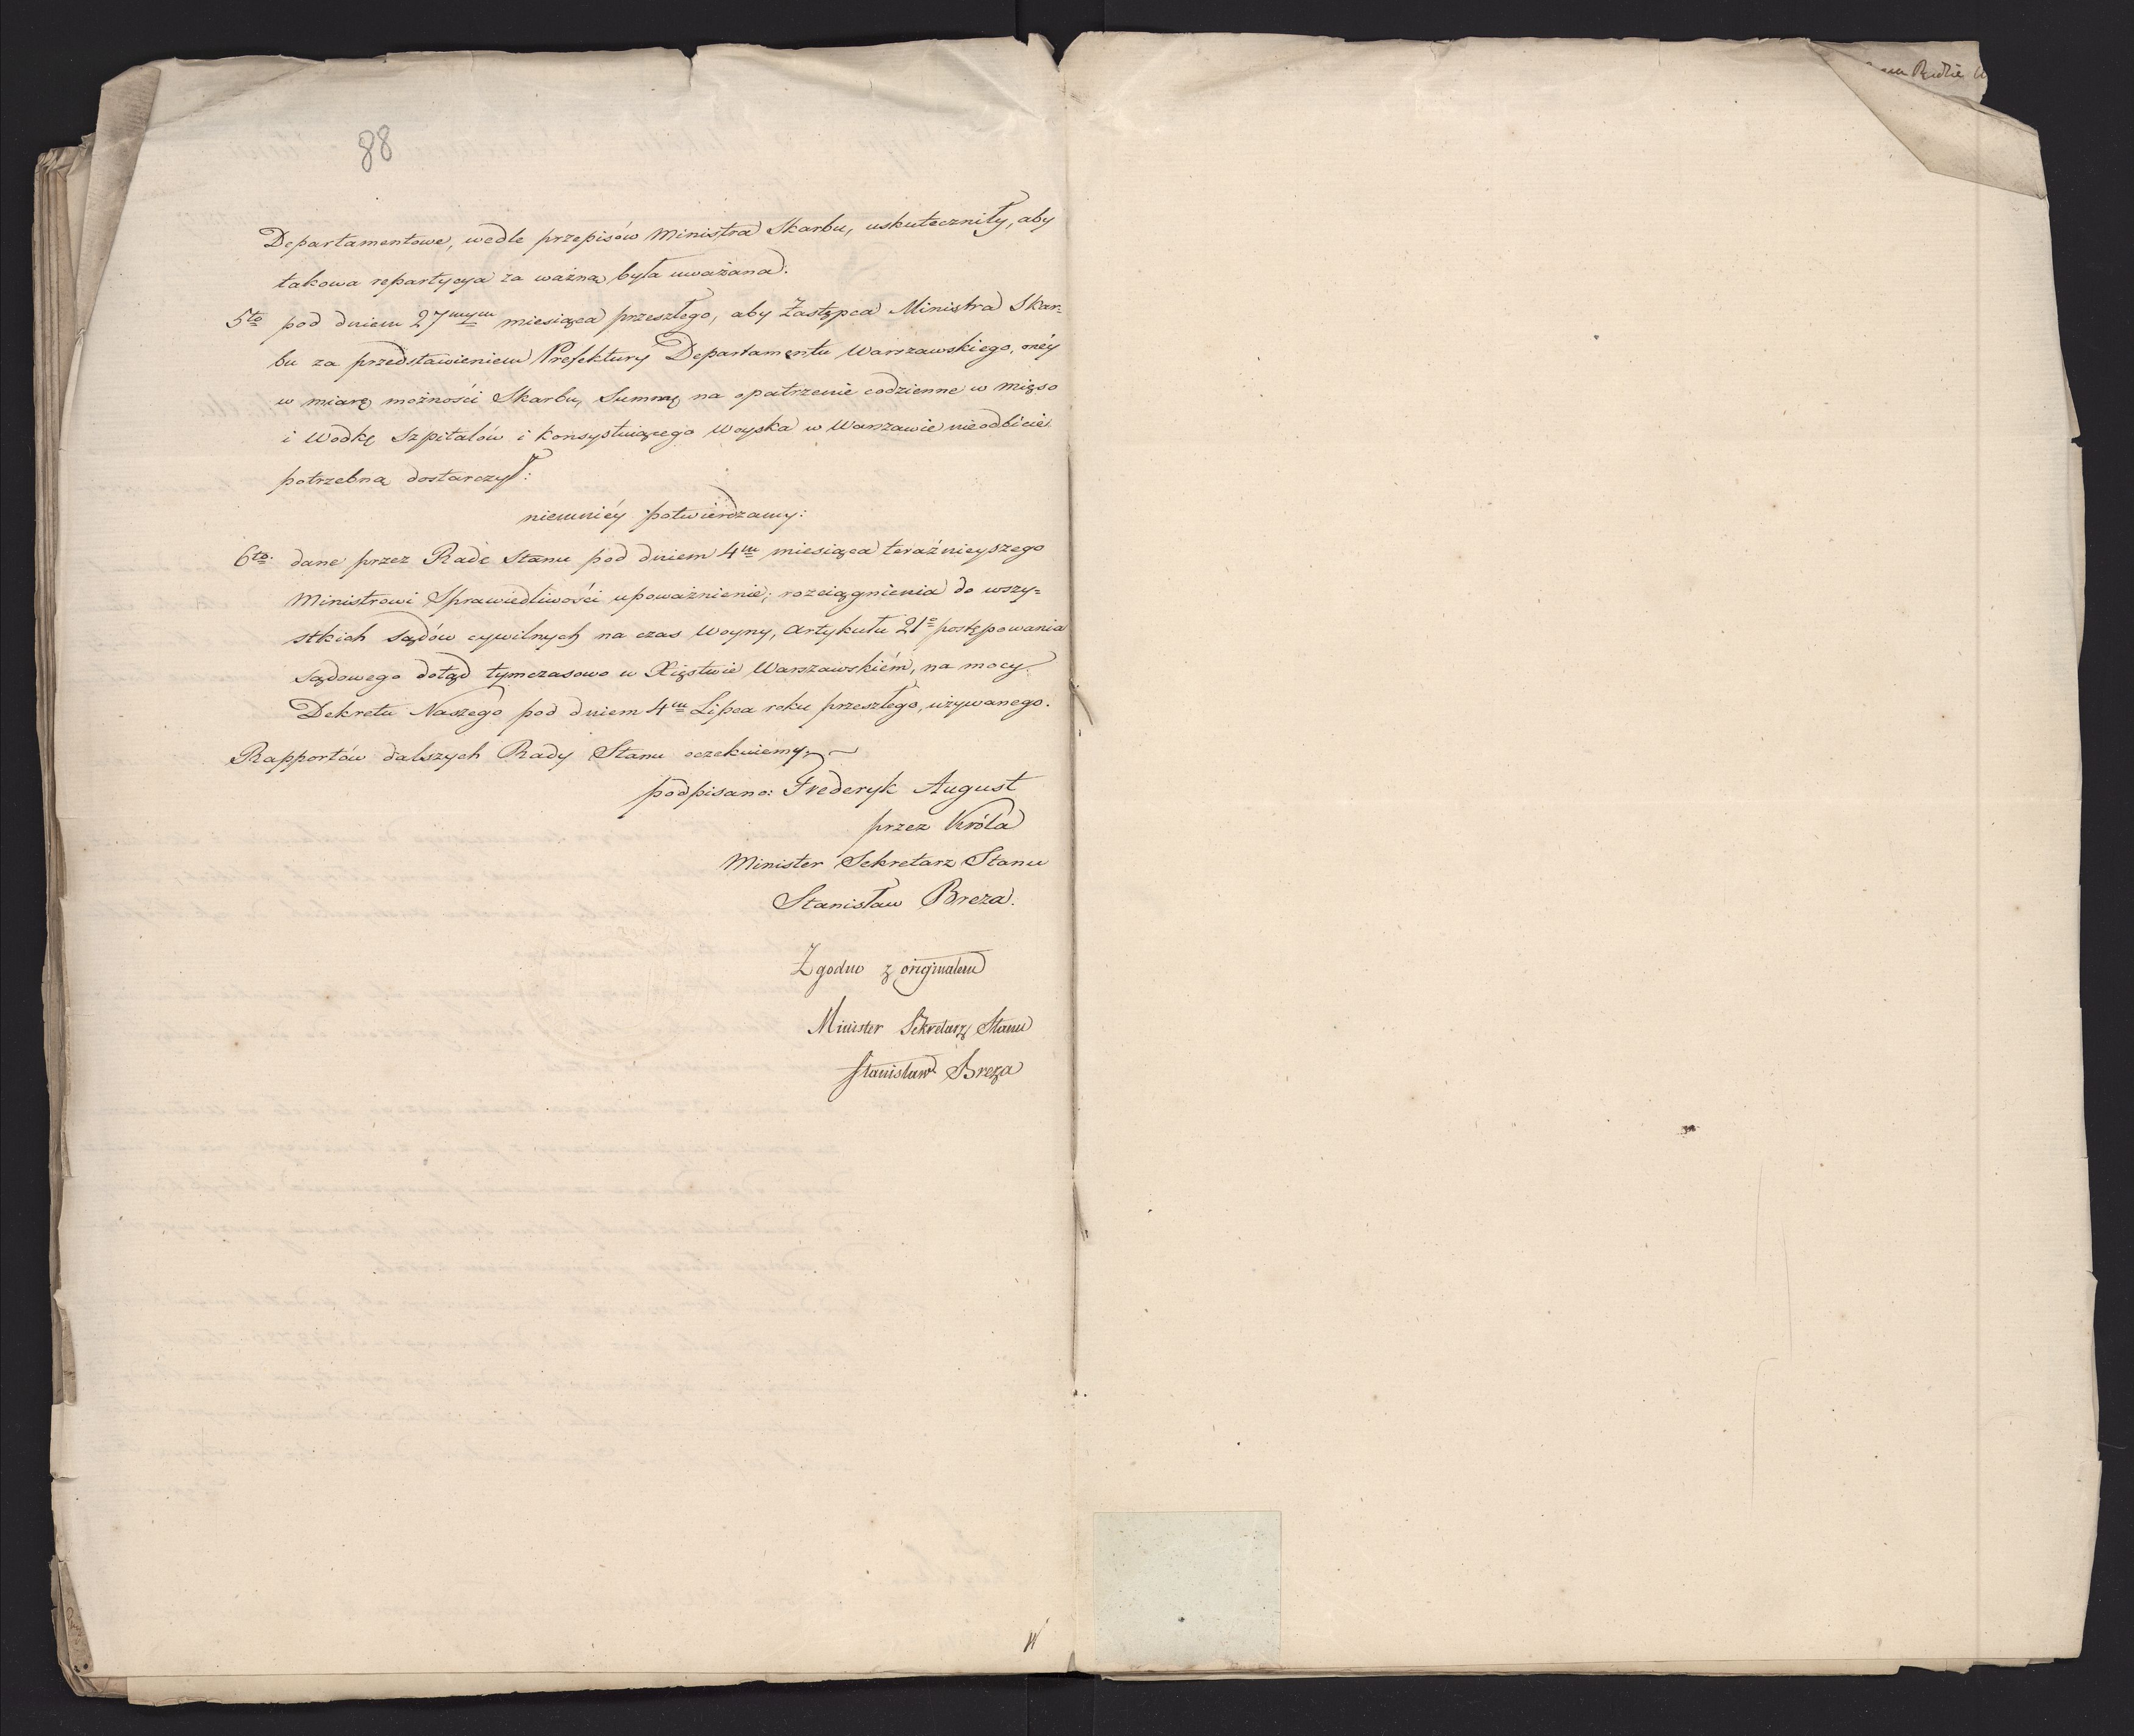 88
Departamentowe, wedle przepisów Ministra Skarbu, uskuteczniły, aby
takowa repartycya za ważną była uważana:
5to pod dniem 27mym miesiąca przeszłego, aby Zastępca Ministra Skar=
bu za przedstawieniem Prefektury Departamentu Warszawskiego, onéy
w miarę możności Skarbu, Summę na opatrzenie codzienne w mięso
i Wodkę Szpitalów i konsystuiącego Woyska w Warszawie nieodbicie
potrzebną dostarczył:
niemniéy potwierdzamy:
6to dane przez Radę Stanu pod dniem 4m miesiąca teraźnieyszego
Ministrowi Sprawiedliwości upoważnienie; rozciągnienia do wszy=
stkich sądów cywilnych na czas Woyny, artykułu 21o postępowania
sądowego dotąd tymczasowo w Xięstwie Warszawskiém, na mocy
Dekretu Naszego pod dniem 4m Lipca roku przeszłego, używanego.
Rapportów dalszych Rady Stanu oczekuiemy.
podpisano: Frederyk August
przez Króla
Minister Sekretarz Stanu
Stanisław Breza.
Zgodno z originałem
Minister Sekretarz Stanu
Stanisław Breza